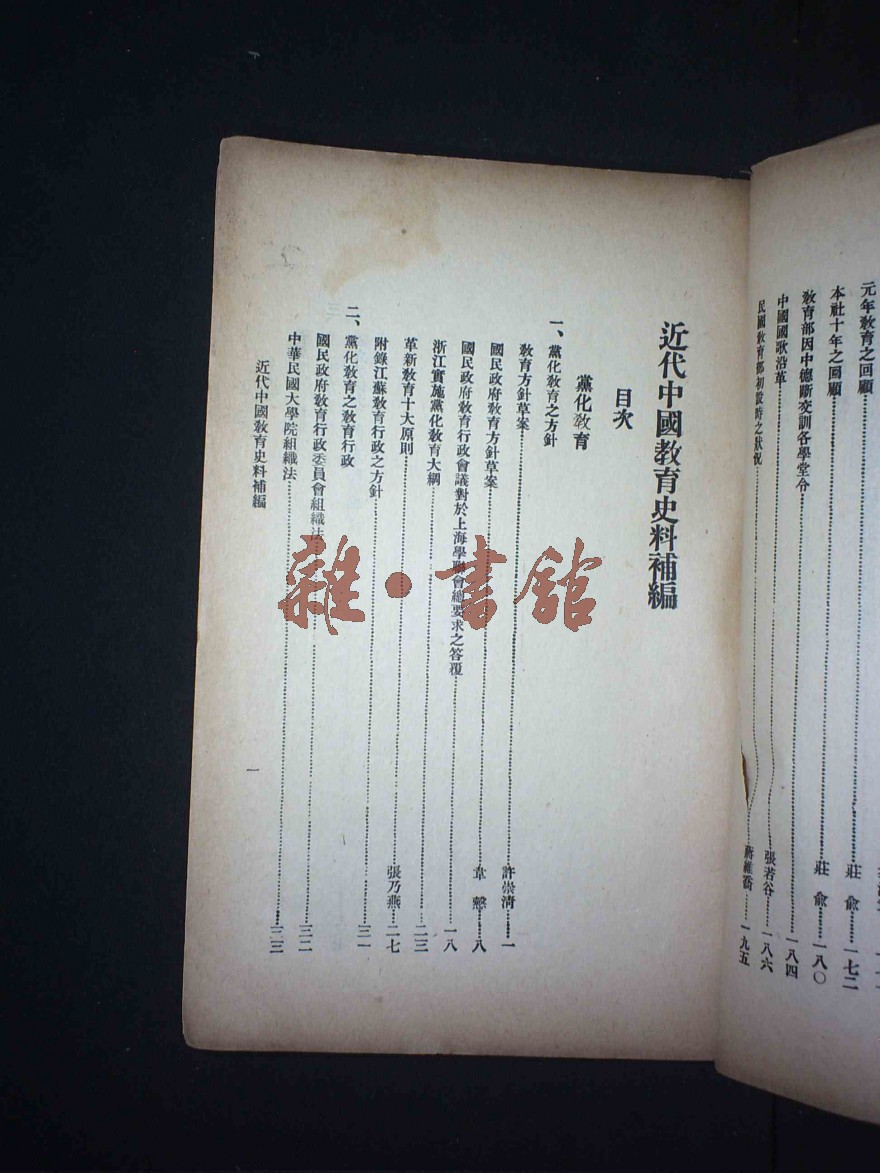 元年教育之回顧……莊俞……一七二
本社十年之回顧……莊俞……一八〇
教育部因中德斷交訓各學堂令……一八四
中國國歌沿革……張若谷……一八六
民國教育部初設時之狀況……蔣維喬……一九五
近代中國教育史料補編
目次
黨化教育
一、黨化教育之方針
教育方針草案……許崇清……一
國民政府教育方針草案……韋慤……八
國民政府教育行政會議對於上海學聯會總要求之答覆……一八
浙江實施黨化教育大綱……二三
革新教育十大原則……張乃燕……二七
附錄江蘇教育行政之方針……三一
二、黨化教育之教育行政
國民政府教育行政委員會組織法……三二
中華民國大學院組織法……三三
近代中國教育史料補編
一
雜·書館